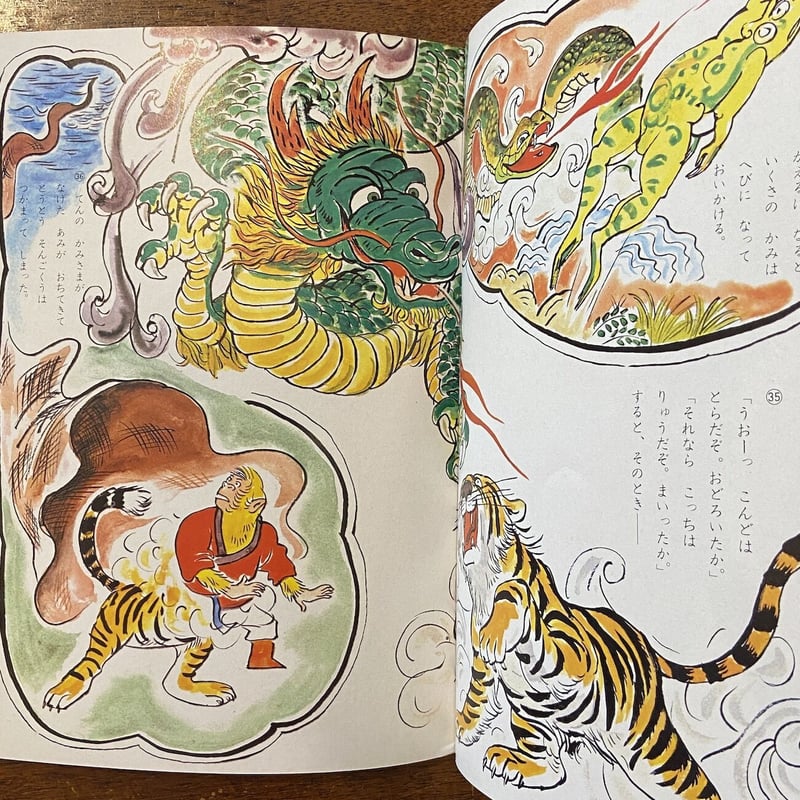 かえるに なると
いくさの かみは
へびに なって
おいかける。
㉟
「うおーっ こんどは
とらだぞ。おどろいたか。」
「それなら こっちは
りゅうだぞ。まいったか。」
すると、そのとき――
㊱ てんの かみさまが
なげた あみが おちてきて
とうとう そんごくうは
つかまって しまった。